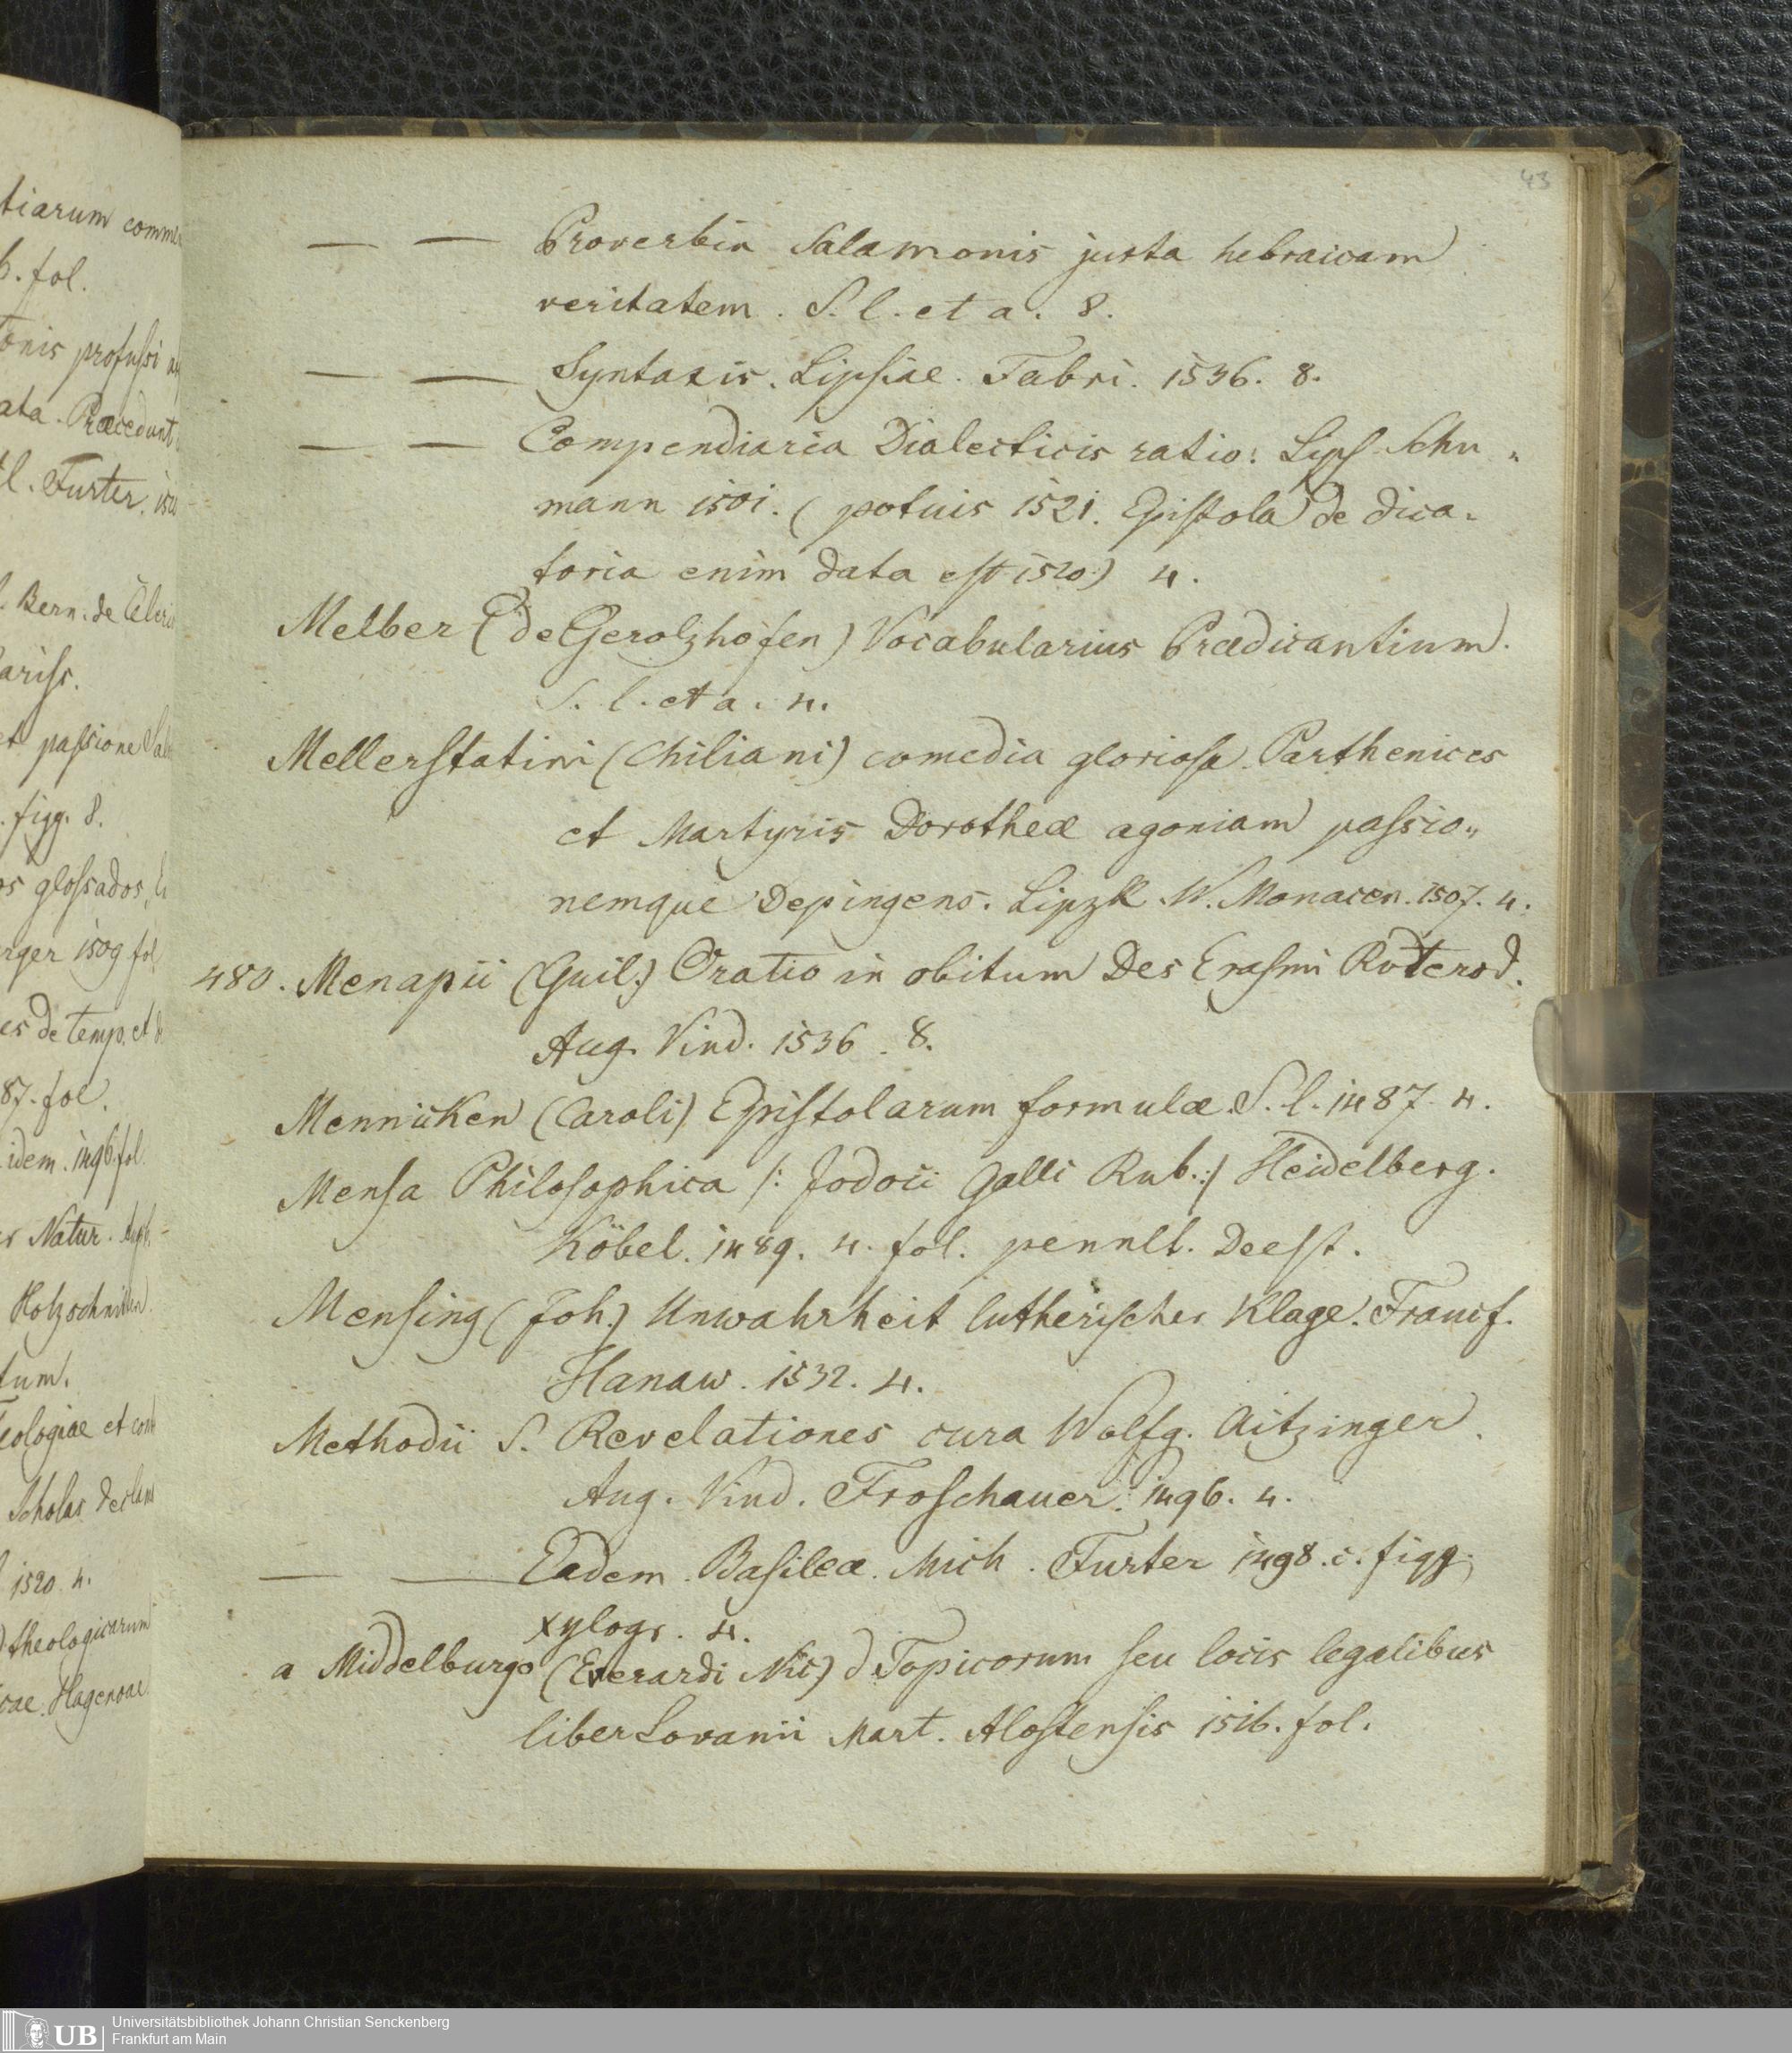 tiarum comme
6. fol.
onis profuſsi
ata. Præcedunt
l. Furter. 150
l. Bern. de Celeri
ariſs.
et paſsione Sal
figg. 8.
os gloſsados,
rger 1509 fol
es de temp. et d
87. fol.
idem. 1496. fol
er Natur. Augb.
Holzschnitten.
tum.
eologiae et cont
Scholas declam
1520. 4.
theologicarum
cae. Hagenoae
43
— — Proverbia Salamonis juxta hebraicam
veritatem. S. l. et a. 8.
— — Syntaxis. Lipſiae. Fabri. 1536. 8.
— — Compendiaria Dialecticis ratio: Lipſ Schu„
mann 1501. (potuis 1521. Epiſtola de dica-
toria enim data eſt 1520.) 4.
Melber (de Gerolzhofen) Vocabularius Prædicantium.
S. l. et a. 4.
Mellerſtatini (Chiliani) comedia glorioſæ Parthenices
et Martyris Dorotheæ agoniam paſsio„
nemque Depingens. Lipzk. W. Monacen. 1507. 4.
480. Menapii (Guil.) Oratio in obitum Des Eraſmi Roterod.
Aug. Vind. 1536. 8.
Mennicken (Caroli) Epiſtolarum formulæ. S. l. 1487. 4.
Menſa Philoſophica /: Jodoci Galli Rub.:/ Heidelberg.
Köbel. 1489. 4. fol. pennlt. Deeſt.
Menſing (Joh.) Unwahrheit lutheriſcher Klage. Francf.
Hanaw. 1532. 4.
Methodii S. Revelationes cura Wolfg. Aitzinger.
Aug. Vind. Froſchauer. 1496. 4.
— — Eadem. Baſileæ. Mich. Furter 1498. c. figg.
xylogr. 4.
a Middelburgo (Everardi Nic) d Topicorum ſeu locis legalibus
liber Lovanii Mart. Aloſtenſis 1516. fol.
UB
Universitätsbibliothek Johann Christian Senckenberg
Frankfurt am Main